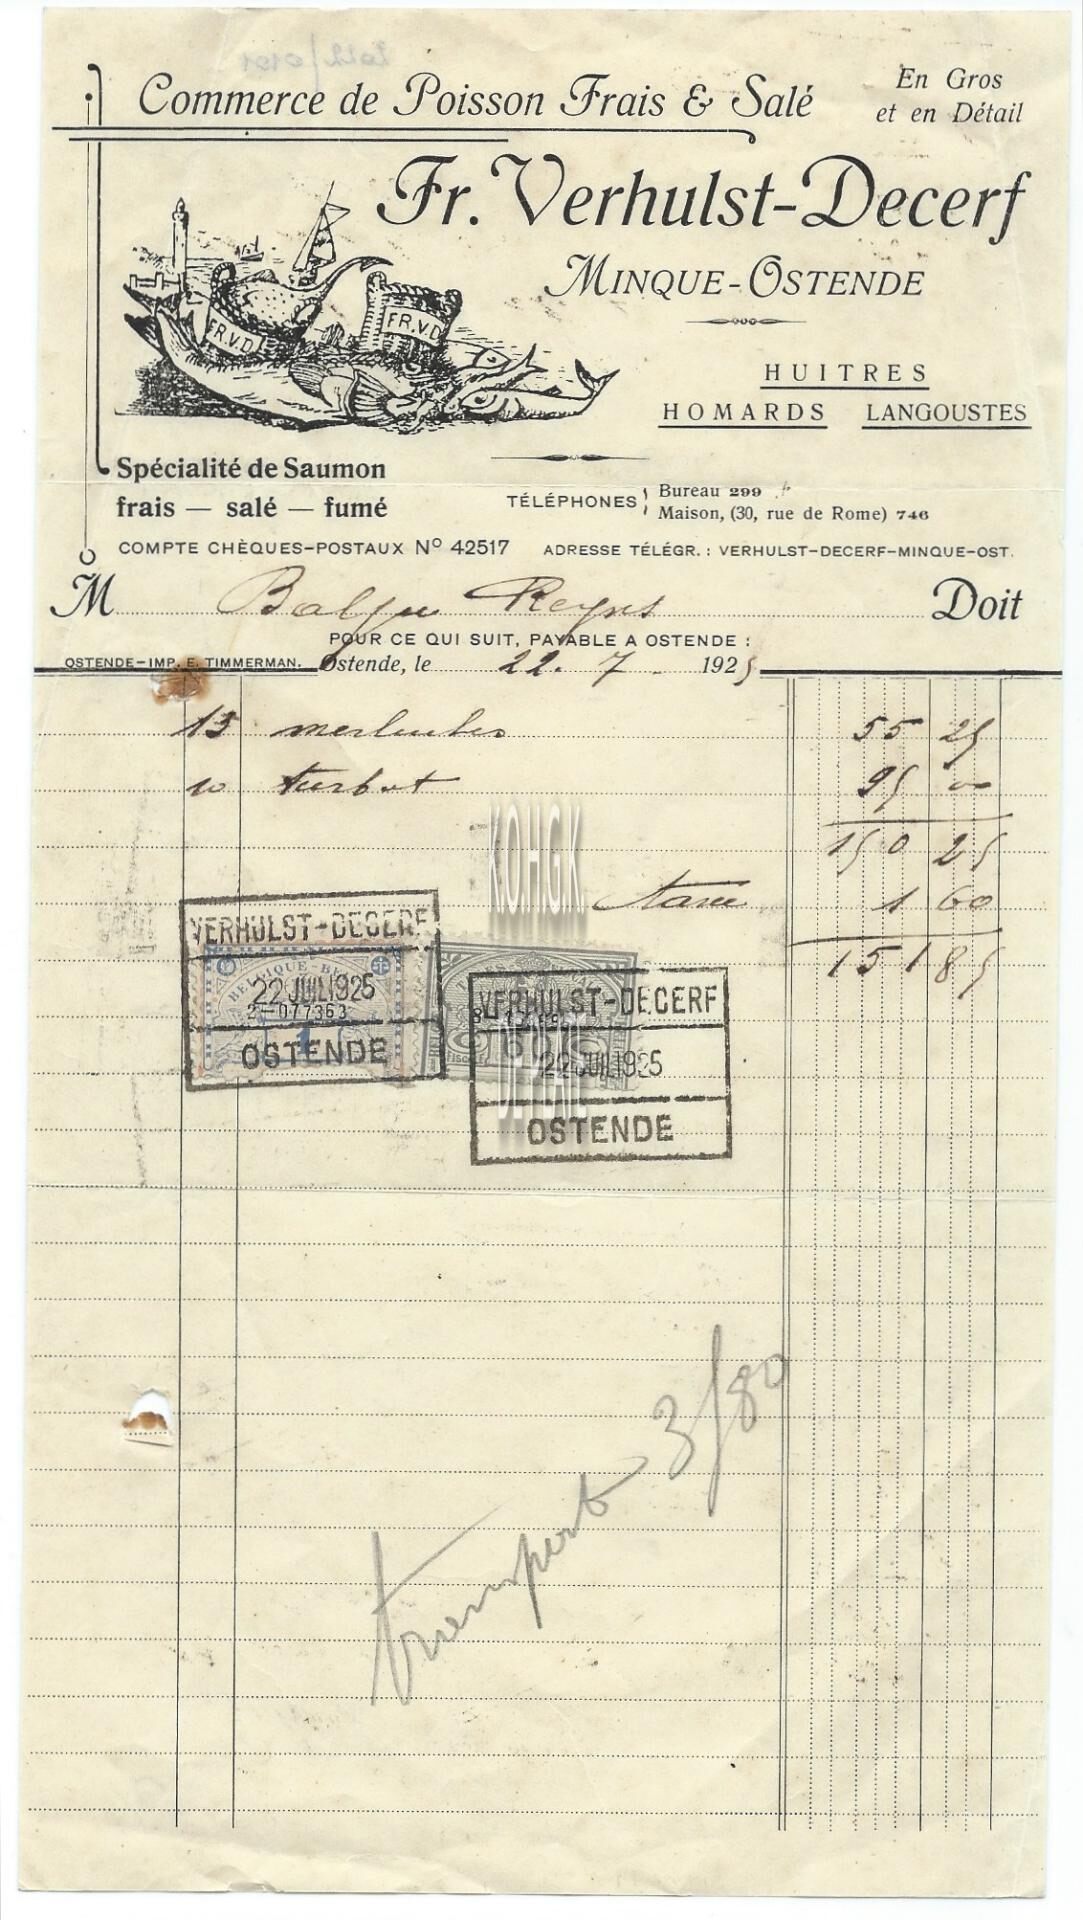 Commerce de Poisson Frais & Salé
En Gros
et en Détail
Fr. Verhulst-Decerf
MINQUE-OSTENDE
FR.V.D
FR.V.D
HUITRES
HOMARDS LANGOUSTES
Spécialité de Saumon
frais — salé — fumé
TÉLÉPHONES
Bureau 299
Maison, (30, rue de Rome) 746
COMPTE CHÈQUES-POSTAUX No 42517 ADRESSE TÉLÉGR. : VERHULST-DECERF-MINQUE-OST.
M Reyns Doit
POUR CE QUI SUIT, PAYABLE A OSTENDE :
OSTENDE-IMP. E. TIMMERMAN. Ostende, le 22.7. 1925
13 merluches 55 25
10 turbot 95 00
150 25
taxe 1 60
151 85
KOHGK
VERHULST-DECERF
BELGIQUE-BE
22 JUIL 1925
2-077363
1
OSTENDE
VERHULST-DECERF
22 JUIL 1925
OSTENDE
transport 3/80